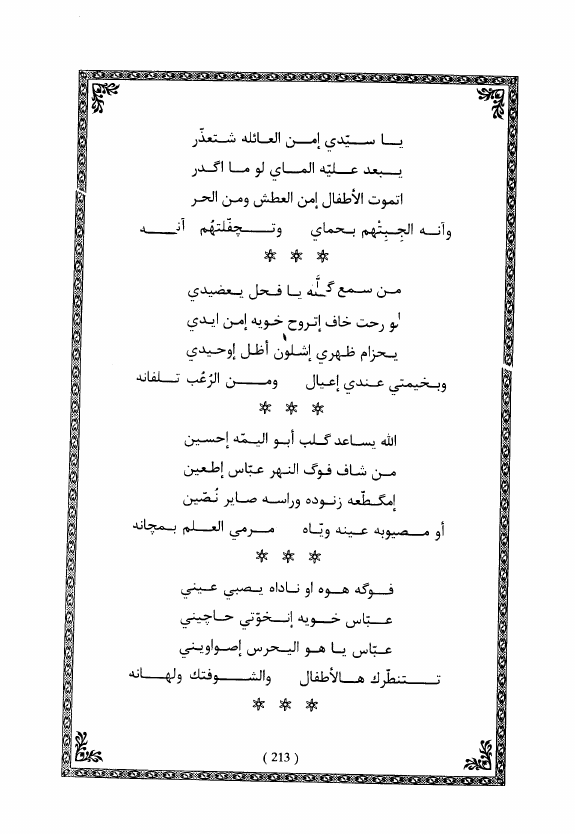 يـــا ســـيّدي إمـــن العـائلـه شـتعذّر
يـــبعد عـــليّه المـــاي لو مـــا اگـدر
اتموت الأطفال إمن العطش ومن الحر
وآنـــه الجِـبِتْهم بـحماي وتـــچفّلتهُم آنـــه
* * *
مـن سـمع گـلّنه يـا فـحل يـعضيدي
لو رحت خاف إتروح خويه إمن ايدي
يـحزام ظـهري إشلون أظل إوحـيدي
وبـخيمتي عـندي إعيال ومـــن الرُعب تـلفانه
* * *
الله يسـاعد گـلب أبـو اليـمّه إحسـين
مـن شـاف فـوگ النـهر عبّاس إطـعين
إمگـطّعه زنـوده وراسـه صـاير نُـصّين
أو مـصيوبه عـينه ويّـاه مـرمي العـلم بـمچانه
* * *
فـوگه هـوه او نـاداه يـصبي عـيني
عـبّاس خـويه إنـخوّتي حـاچيني
عـبّاس يـا هـو اليـحرس إصـواويـني
تـتنطّرك هـالأطفال والشـوفتك ولهـانه
* * *
( 213 )